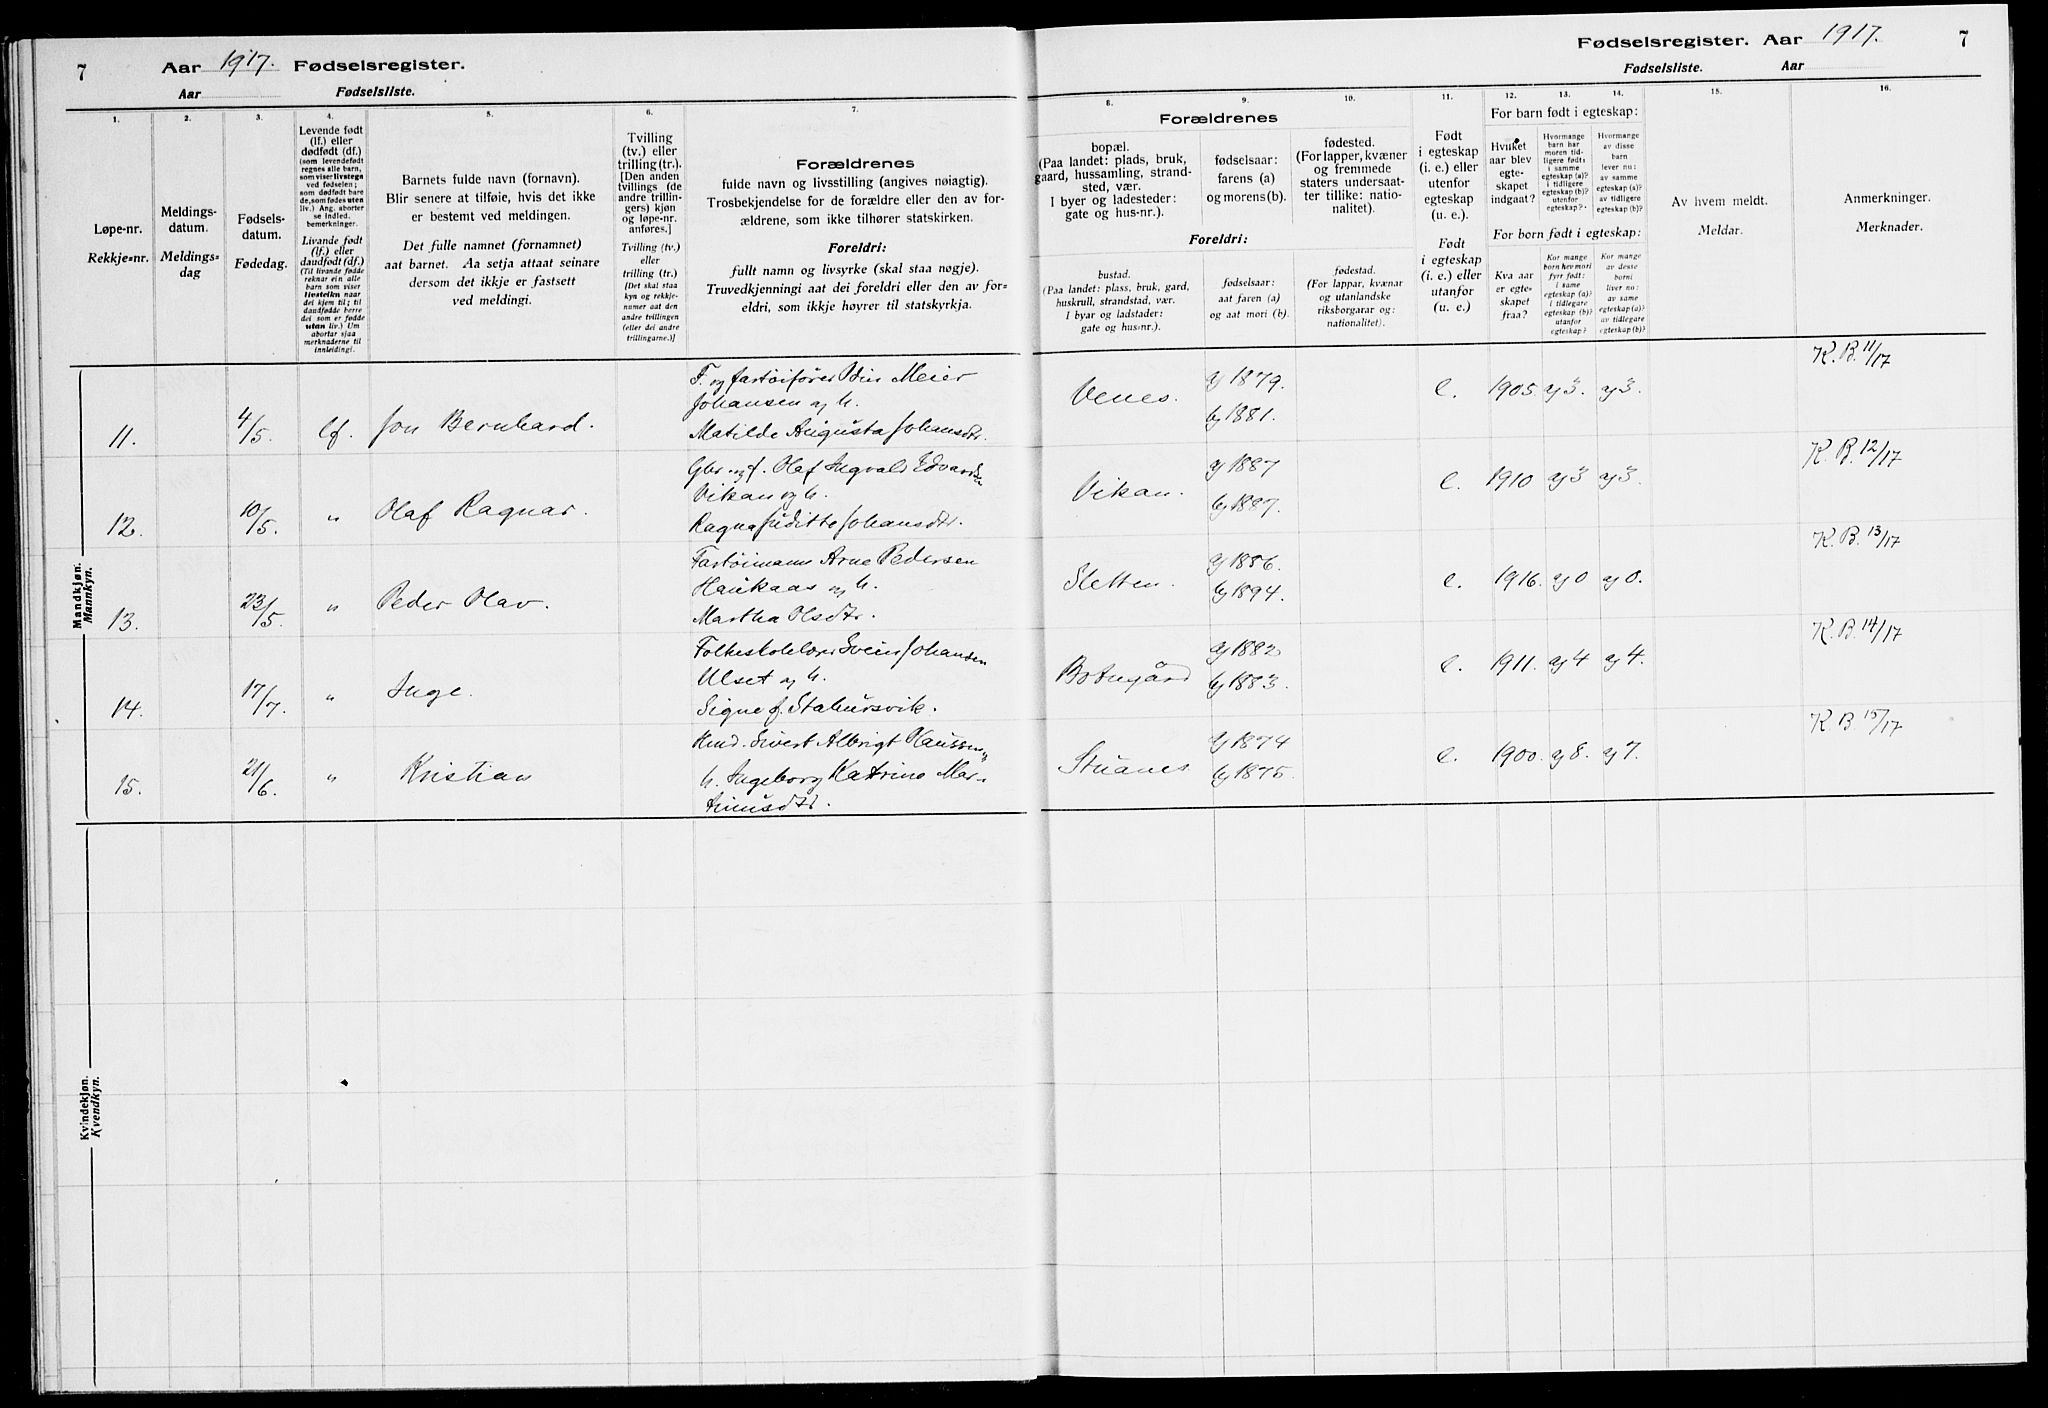 7 Aar 1917. Fødselsregister.
Aar Fødselsliste.
Fødselsregister. Aar 1917. 7
Fødselsliste. Aar
1.
Løpe-nr.
Rekkje-nr.
2.
Meldings-
datum.
Meldings-
dag
3.
Fødsels-
datum.
Fødedag.
4.
Levende født
(lf.) eller
dødfødt (df.)
(som levendefødt
regnes alle barn,
som viser livstegn
ved fødselen;
som dødfødt bare
de, som fødes uten
liv.) Ang. aborter
se indled.
bemerkninger.
Livande født
(lf.) eller
daudfødt (df.)
(Til livande fødde
reknar ein alle
barn som viser
livsteikn naar
dei kjem til; til
daudfødde berre
dei som er fødde
utan liv.) Um
abortar sjaa
merknaderne til
innleidingi.
5.
Barnets fulde navn (fornavn).
Blir senere at tilføie, hvis det ikke
er bestemt ved meldingen.
Det fulle namnet (fornamnet)
aat barnet. Aa setja attaat seinare
dersom det ikkje er fastsett
ved meldingi.
6.
Tvilling
(tv.) eller
trilling (tr.).
[Den anden
tvillings (de
andre trillin-
gers) kjøn
og løpe-nr.
anføres.]
Tvilling (tv.)
eller
trilling (tr.)
[Det skal staa
kyn og rekkje-
numer aat den
andre tvillingen
(eller dei andre
trillingarne.)]
7.
Forældrenes
fulde navn og livsstilling (angives nøiagtig).
Trosbekjendelse for de forældre eller den av for-
ældrene, som ikke tilhører statskirken.
Foreldri:
fullt namn og livsyrke (skal staa nøgje).
Truvedkjenningi aat dei foreldri eller den av for-
eldri, som ikkje høyrer til statskyrkja.
8.
9.
10.
Forældrenes
bopæl.
(Paa landet: plads, bruk,
gaard, hussamling, strand-
sted, vær.
I byer og ladesteder:
gate og hus-nr.).
fødselsaar:
farens (a)
og morens (b).
fødested.
(For lapper, kvæner
og fremmede
staters undersaat-
ter tillike: natio-
nalitet).
Foreldri:
bustad.
(Paa landet: plass, bruk, gard,
huskrull, strandstad, vær.
I byar og ladstader:
gate og hus-nr.).
fødselsaar:
aat faren (a)
og aat mori (b).
fødestad.
(For lappar, kvænar
og utanlandske
riksborgarar og:
nationalitet).
11.
Født
i egteskap
(i. e.) eller
utenfor
egteskap
(u. e.).
Født
i egteskap
(i. e.) eller
utanfor
(u. e.)
12.
13.
14.
For barn født i egteskap:
Hvilket
aar blev
egte-
skapet
indgaat?
Hvormange
barn har
moren tid-
ligere født:
i samme
egteskap (a)?
i tidligere
egteskap (b)?
utenfor
egteskap?
Hvormange
av disse
barn
lever av nu:
av samme
egteskap (a)?
av tidligere
egteskap (b)?
For born født i egteskap:
Kva aar
er egte-
skapet
fraa?
Kor mange
born hev mori
fyrr født:
i same
egteskap (a)?
i tidlegare
egteskap (b)?
utanfor
egteskap?
Kor mange
av desse
borni
liver no:
av same
egteskap (a)?
av tidlegare
egteskap (b)?
15.
Av hvem meldt.
Meldar.
16.
Anmerkninger.
Merknader.
Mandkjøn.
Mannkyn.
11. 4/5. lf. Jon Bernhard.
F. og fartøifører Meier
Johansen og h.
Matilde Augusta Johansdtr.
Venes. a) 1879. b) 1881. e. 1905. a) 3. a) 3. K. B. 11/17
12. 10/5. " Olaf Ragnar.
Gbr. og f. Olaf Ingvald Edvardsen
Vikan og h.
Ragna Juditte Johansdtr.
Vikan. a) 1887 b) 1887. e. 1910 a) 3 a) 3. K. B. 12/17
13. 23/5. " Peder Olav.
Fartøimann Arne Pedersen
Haukaas og h.
Martha Olsdtr.
Sletten. a) 1886. b) 1894. e. 1916. a) 0 a) 0. K. B. 13/17
14. 17/7. " Inge.
Folkeskolelærer Svein Johansen
Ulset og h.
Signe f. Stahursvik.
Botngård a) 1882 b) 1883. e. 1911. a) 4 a) 4. K. B. 14/17
15. 21/6. " Kristian
Sivert Albrigt Hanssen
h. Ingeborg Katrine Mar-
tinusdtr.
Stuanes a) 1874 b) 1875. e. 1900. a) 8. a) 7. K. B. 15/17
Kvindekjøn.
Kvendkyn.